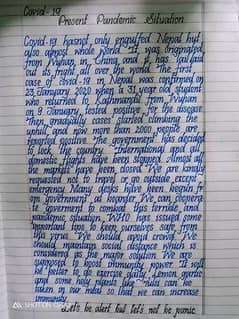 Covid-19
Present Pandemic Situation
Covid-19 has not only engulfed Nepal but
also almost whole world. It was originated
from Wuhan, in China, and it has laid
out its fright all over the world. The first
case of covid-19 in Nepal was confirmed on
23 January 2020 when a 31 year old student
who returned to Kathmandu from Wuhan
on 9 January, tested positive for the disease
Then gradually cases started climbing the
uphill, and now more than 2000 people are
reported positive. The government has decided
to lock the country. International and all
domestic flights have been stopped. Almost all
the markets have been closed. We are kindly
requested not to imply or go outside except
emergency. Many desks have been begun from
government at boarder. We can cooperate
government to combat this terrible and
pandemic situation. WHO has issued some
important tips to keep ourselves safe from
this virus. We should avoid crowd. We
should maintain social distance which is
considered as the major solution. We are
supposed to boost immunity power. It will
be better to do exercise daily. Lemon, garlic
and some holy plants like tulsi can be
taken in our meal so that we can increase
immunity.
Let's be alert but let's not be panic.
SHOT ON